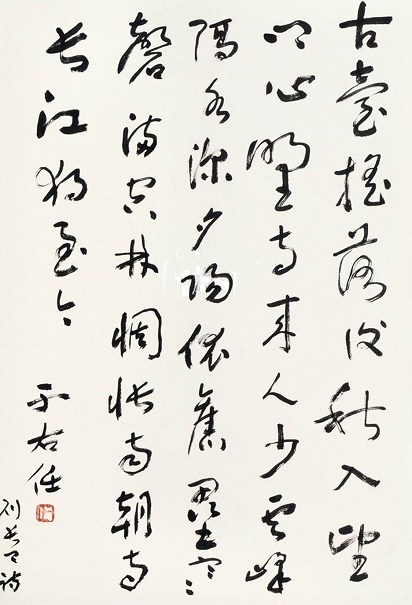 古臺搖落後秋入望
鄉心野寺來人少雲峰
隔水深夕陽依舊壘寒
磬滿空林惆悵南朝事
長江獨至今
于右任
劉長卿詩